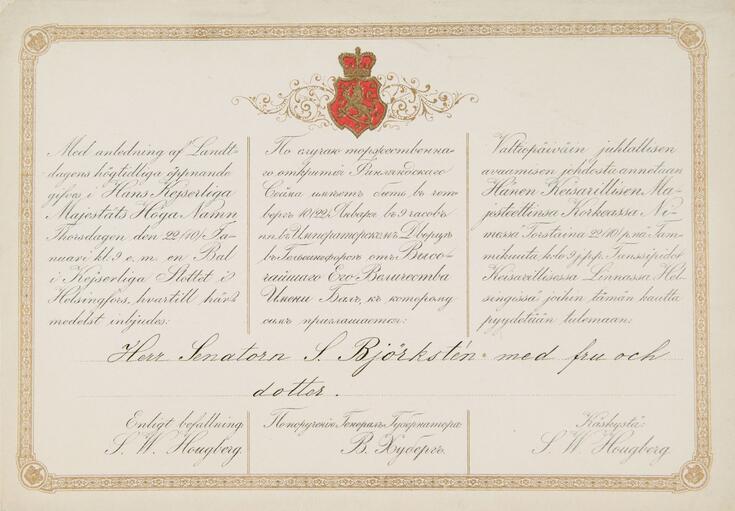 Med anledning af Landt-
dagens högtidliga öppnande
gifves i Hans Kejserliga
Majestäts Höga Namn
Thorsdagen den 22/10/ Ja-
nuari kl. 9 e. m. en Bal
i Kejserliga Slottet i
Helsingfors, hvartill här-
medelst inbjudes:
По случаю торжественна-
го открытія Финляндскаго
Сейма имѣетъ быть, въ чет-
вергъ 10/22 Января въ 9 часовъ
п.п. въ Императорскомъ Дворцѣ
въ Гельсингфорсѣ отъ Высо-
чайшаго Его Величества
Имени Балъ, къ которому
симъ приглашается:
Valtiopäiväin juhlallisen
avaamisen johdosta annetaan
Hänen Keisarillisen Ma-
jesteettinsa Korkeassa Ni-
messä Torstaina 22/10/ p:nä Tam-
mikuuta, k:lo 9 j.p.p. Tanssipidot
Keisarillisessa Linnassa Hel-
singissä joihin tämän kautta
pyydetään tulemaan:
Herr Senatorn S. Björkstén med fru och
dotter.
Enligt befallning
S. W. Hougberg.
По порученію Генералъ Губернатора
В. Хубергъ.
Käskystä:
S. W. Hougberg.